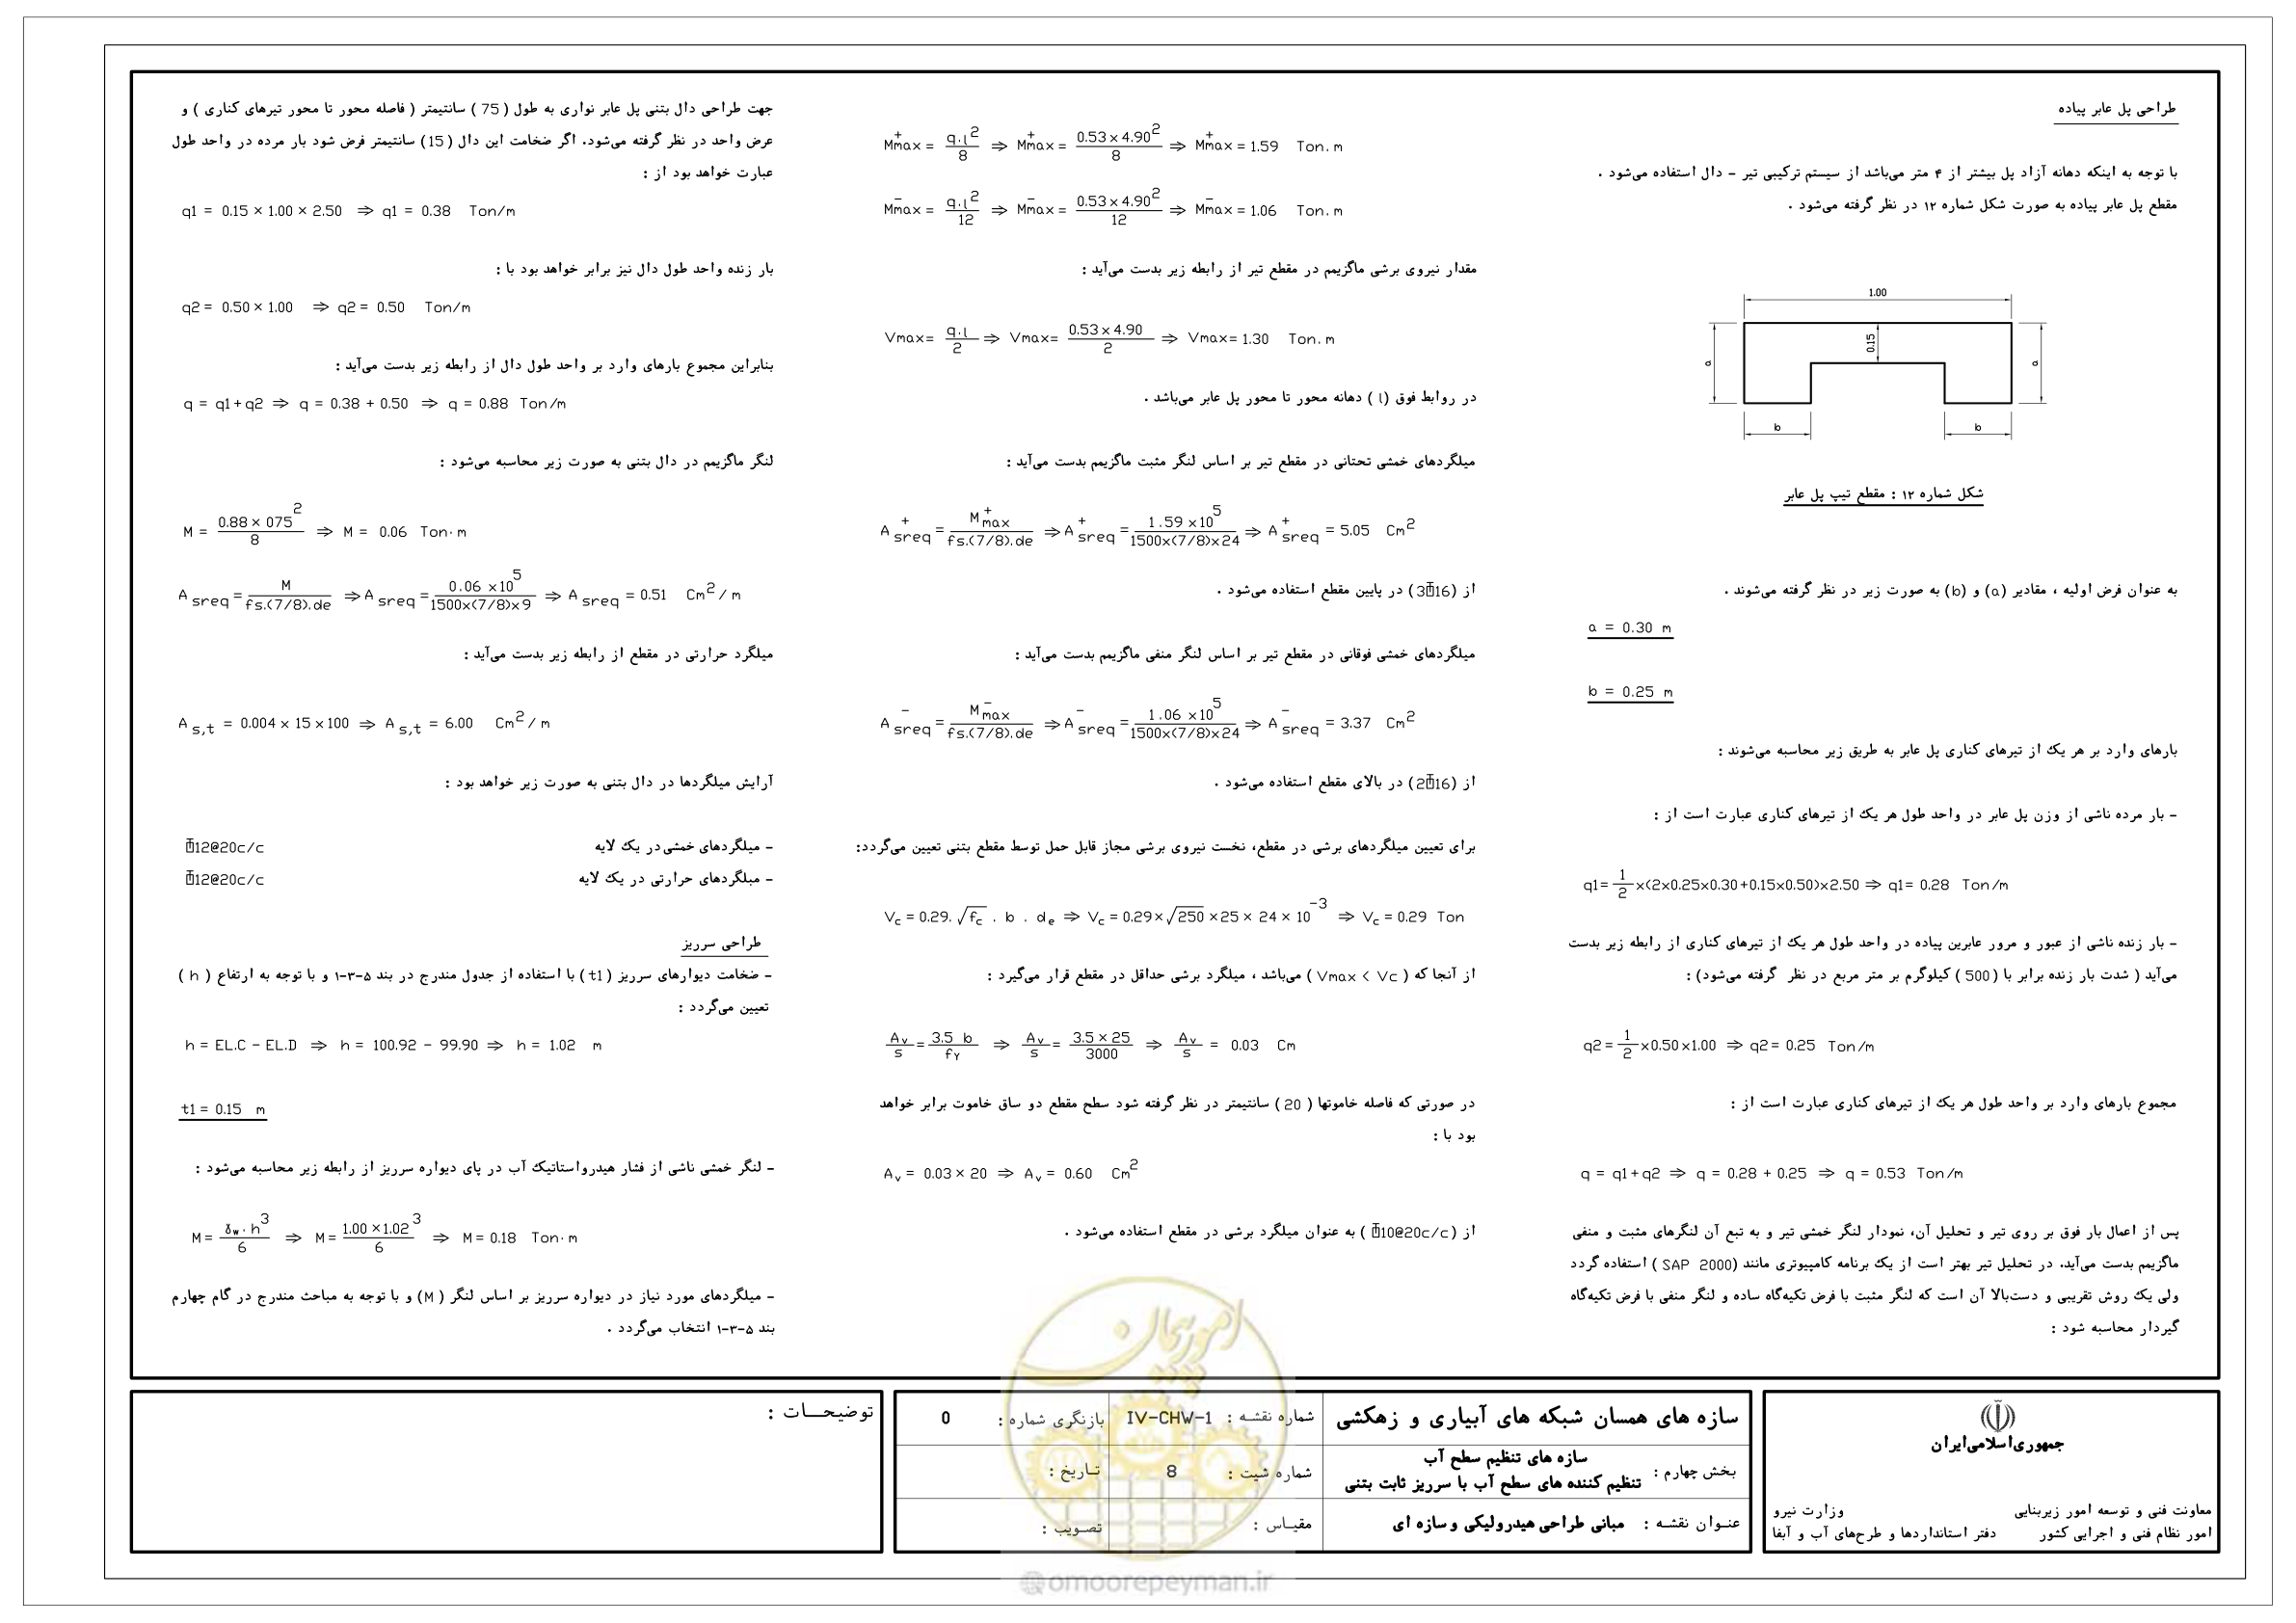 طراحی پل عابر پیاده
با توجه به اینکه دهانه آزاد پل بیشتر از ۴ متر می‌باشد از سیستم ترکیبی تیر - دال استفاده می‌شود .
مقطع پل عابر پیاده به صورت شکل شماره ۱۲ در نظر گرفته می‌شود .
1.00
0.15
a
a
b
b
شکل شماره ۱۲ : مقطع تیپ پل عابر
به عنوان فرض اولیه ، مقادیر (a) و (b) به صورت زیر در نظر گرفته می‌شوند .
a = 0.30 m
b = 0.25 m
بارهای وارد بر هر یک از تیرهای کناری پل عابر به طریق زیر محاسبه می‌شوند :
- بار مرده ناشی از وزن پل عابر در واحد طول هر یک از تیرهای کناری عبارت است از :
q1= 1/2 x(2x0.25x0.30+0.15x0.50)x2.50 ⇒ q1= 0.28 Ton/m
- بار زنده ناشی از عبور و مرور عابرین پیاده در واحد طول هر یک از تیرهای کناری از رابطه زیر بدست
می‌آید ( شدت بار زنده برابر با ( 500 ) کیلوگرم بر متر مربع در نظر گرفته می‌شود) :
q2= 1/2 x0.50x1.00 ⇒ q2= 0.25 Ton/m
مجموع بارهای وارد بر واحد طول هر یک از تیرهای کناری عبارت است از :
q = q1+q2 ⇒ q = 0.28 + 0.25 ⇒ q = 0.53 Ton/m
پس از اعمال بار فوق بر روی تیر و تحلیل آن، نمودار لنگر خمشی تیر و به تبع آن لنگرهای مثبت و منفی
ماگزیمم بدست می‌آید. در تحلیل تیر بهتر است از یک برنامه کامپیوتری مانند (SAP 2000 ) استفاده گردد
ولی یک روش تقریبی و دست‌بالا آن است که لنگر مثبت با فرض تکیه‌گاه ساده و لنگر منفی با فرض تکیه‌گاه
گیردار محاسبه شود :
M+max = q.l²/8 ⇒ M+max = 0.53 x 4.90²/8 ⇒ M+max = 1.59 Ton.m
M-max = q.l²/12 ⇒ M-max = 0.53 x 4.90²/12 ⇒ M-max = 1.06 Ton.m
مقدار نیروی برشی ماگزیمم در مقطع تیر از رابطه زیر بدست می‌آید :
Vmax= q.l/2 ⇒ Vmax= 0.53 x 4.90/2 ⇒ Vmax= 1.30 Ton.m
در روابط فوق (l ) دهانه محور تا محور پل عابر می‌باشد .
میلگردهای خمشی تحتانی در مقطع تیر بر اساس لنگر مثبت ماگزیمم بدست می‌آید :
A+sreq = M+max/fs.(7/8).de ⇒ A+sreq = 1.59 x10⁵/1500x(7/8)x24 ⇒ A+sreq = 5.05 Cm²
از (3Φ16) در پایین مقطع استفاده می‌شود .
میلگردهای خمشی فوقانی در مقطع تیر بر اساس لنگر منفی ماگزیمم بدست می‌آید :
A-sreq = M-max/fs.(7/8).de ⇒ A-sreq = 1.06 x10⁵/1500x(7/8)x24 ⇒ A-sreq = 3.37 Cm²
از (2Φ16) در بالای مقطع استفاده می‌شود .
برای تعیین میلگردهای برشی در مقطع، نخست نیروی برشی مجاز قابل حمل توسط مقطع بتنی تعیین می‌گردد:
Vc = 0.29.√fc . b . de ⇒ Vc = 0.29 x √250 x 25 x 24 x 10⁻³ ⇒ Vc = 0.29 Ton
از آنجا که ( Vmax < Vc ) می‌باشد ، میلگرد برشی حداقل در مقطع قرار می‌گیرد :
Av/s = 3.5 b/fY ⇒ Av/s = 3.5 x 25/3000 ⇒ Av/s = 0.03 Cm
در صورتی که فاصله خاموتها ( 20 ) سانتیمتر در نظر گرفته شود سطح مقطع دو ساق خاموت برابر خواهد
بود با :
Av = 0.03 x 20 ⇒ Av = 0.60 Cm²
از ( Φ10@20c/c ) به عنوان میلگرد برشی در مقطع استفاده می‌شود .
جهت طراحی دال بتنی پل عابر نواری به طول ( 75 ) سانتیمتر ( فاصله محور تا محور تیرهای کناری ) و
عرض واحد در نظر گرفته می‌شود. اگر ضخامت این دال ( 15 ) سانتیمتر فرض شود بار مرده در واحد طول
عبارت خواهد بود از :
q1 = 0.15 x 1.00 x 2.50 ⇒ q1 = 0.38 Ton/m
بار زنده واحد طول دال نیز برابر خواهد بود با :
q2 = 0.50 x 1.00 ⇒ q2 = 0.50 Ton/m
بنابراین مجموع بارهای وارد بر واحد طول دال از رابطه زیر بدست می‌آید :
q = q1+q2 ⇒ q = 0.38 + 0.50 ⇒ q = 0.88 Ton/m
لنگر ماگزیمم در دال بتنی به صورت زیر محاسبه می‌شود :
M = 0.88 x 075²/8 ⇒ M = 0.06 Ton.m
Asreq = M/fs.(7/8).de ⇒ Asreq = 0.06 x10⁵/1500x(7/8)x9 ⇒ Asreq = 0.51 Cm²/m
میلگرد حرارتی در مقطع از رابطه زیر بدست می‌آید :
As,t = 0.004 x 15 x 100 ⇒ As,t = 6.00 Cm²/m
آرایش میلگردها در دال بتنی به صورت زیر خواهد بود :
- میلگردهای خمشی در یک لایه Φ12@20c/c
- میلگردهای حرارتی در یک لایه Φ12@20c/c
طراحی سرریز
- ضخامت دیوارهای سرریز ( t1 ) با استفاده از جدول مندرج در بند ۵-۳-۱ و با توجه به ارتفاع ( h )
تعیین می‌گردد :
h = EL.C - EL.D ⇒ h = 100.92 - 99.90 ⇒ h = 1.02 m
t1 = 0.15 m
- لنگر خمشی ناشی از فشار هیدرواستاتیک آب در پای دیواره سرریز از رابطه زیر محاسبه می‌شود :
M = γw.h³/6 ⇒ M = 1.00 x 1.02³/6 ⇒ M = 0.18 Ton.m
- میلگردهای مورد نیاز در دیواره سرریز بر اساس لنگر ( M) و با توجه به مباحث مندرج در گام چهارم
بند ۵-۳-۱ انتخاب می‌گردد .
جمهوری‌اسلامی‌ایران
معاونت فنی و توسعه امور زیربنایی
امور نظام فنی و اجرایی کشور
وزارت نیرو
دفتر استانداردها و طرح‌های آب و آبفا
سازه های همسان شبکه های آبیاری و زهکشی
بخش چهارم : سازه های تنظیم سطح آب
تنظیم کننده های سطح آب با سرریز ثابت بتنی
عنـوان نقشـه : مبانی طراحی هیدرولیکی و سازه ای
شماره نقشـه : IV-CHW-1
شماره شیت : 8
مقیـاس :
بازنگری شماره : 0
تـاریخ :
تصـویب :
توضیحـــات :
امورپیمان
@omoorepeyman.ir